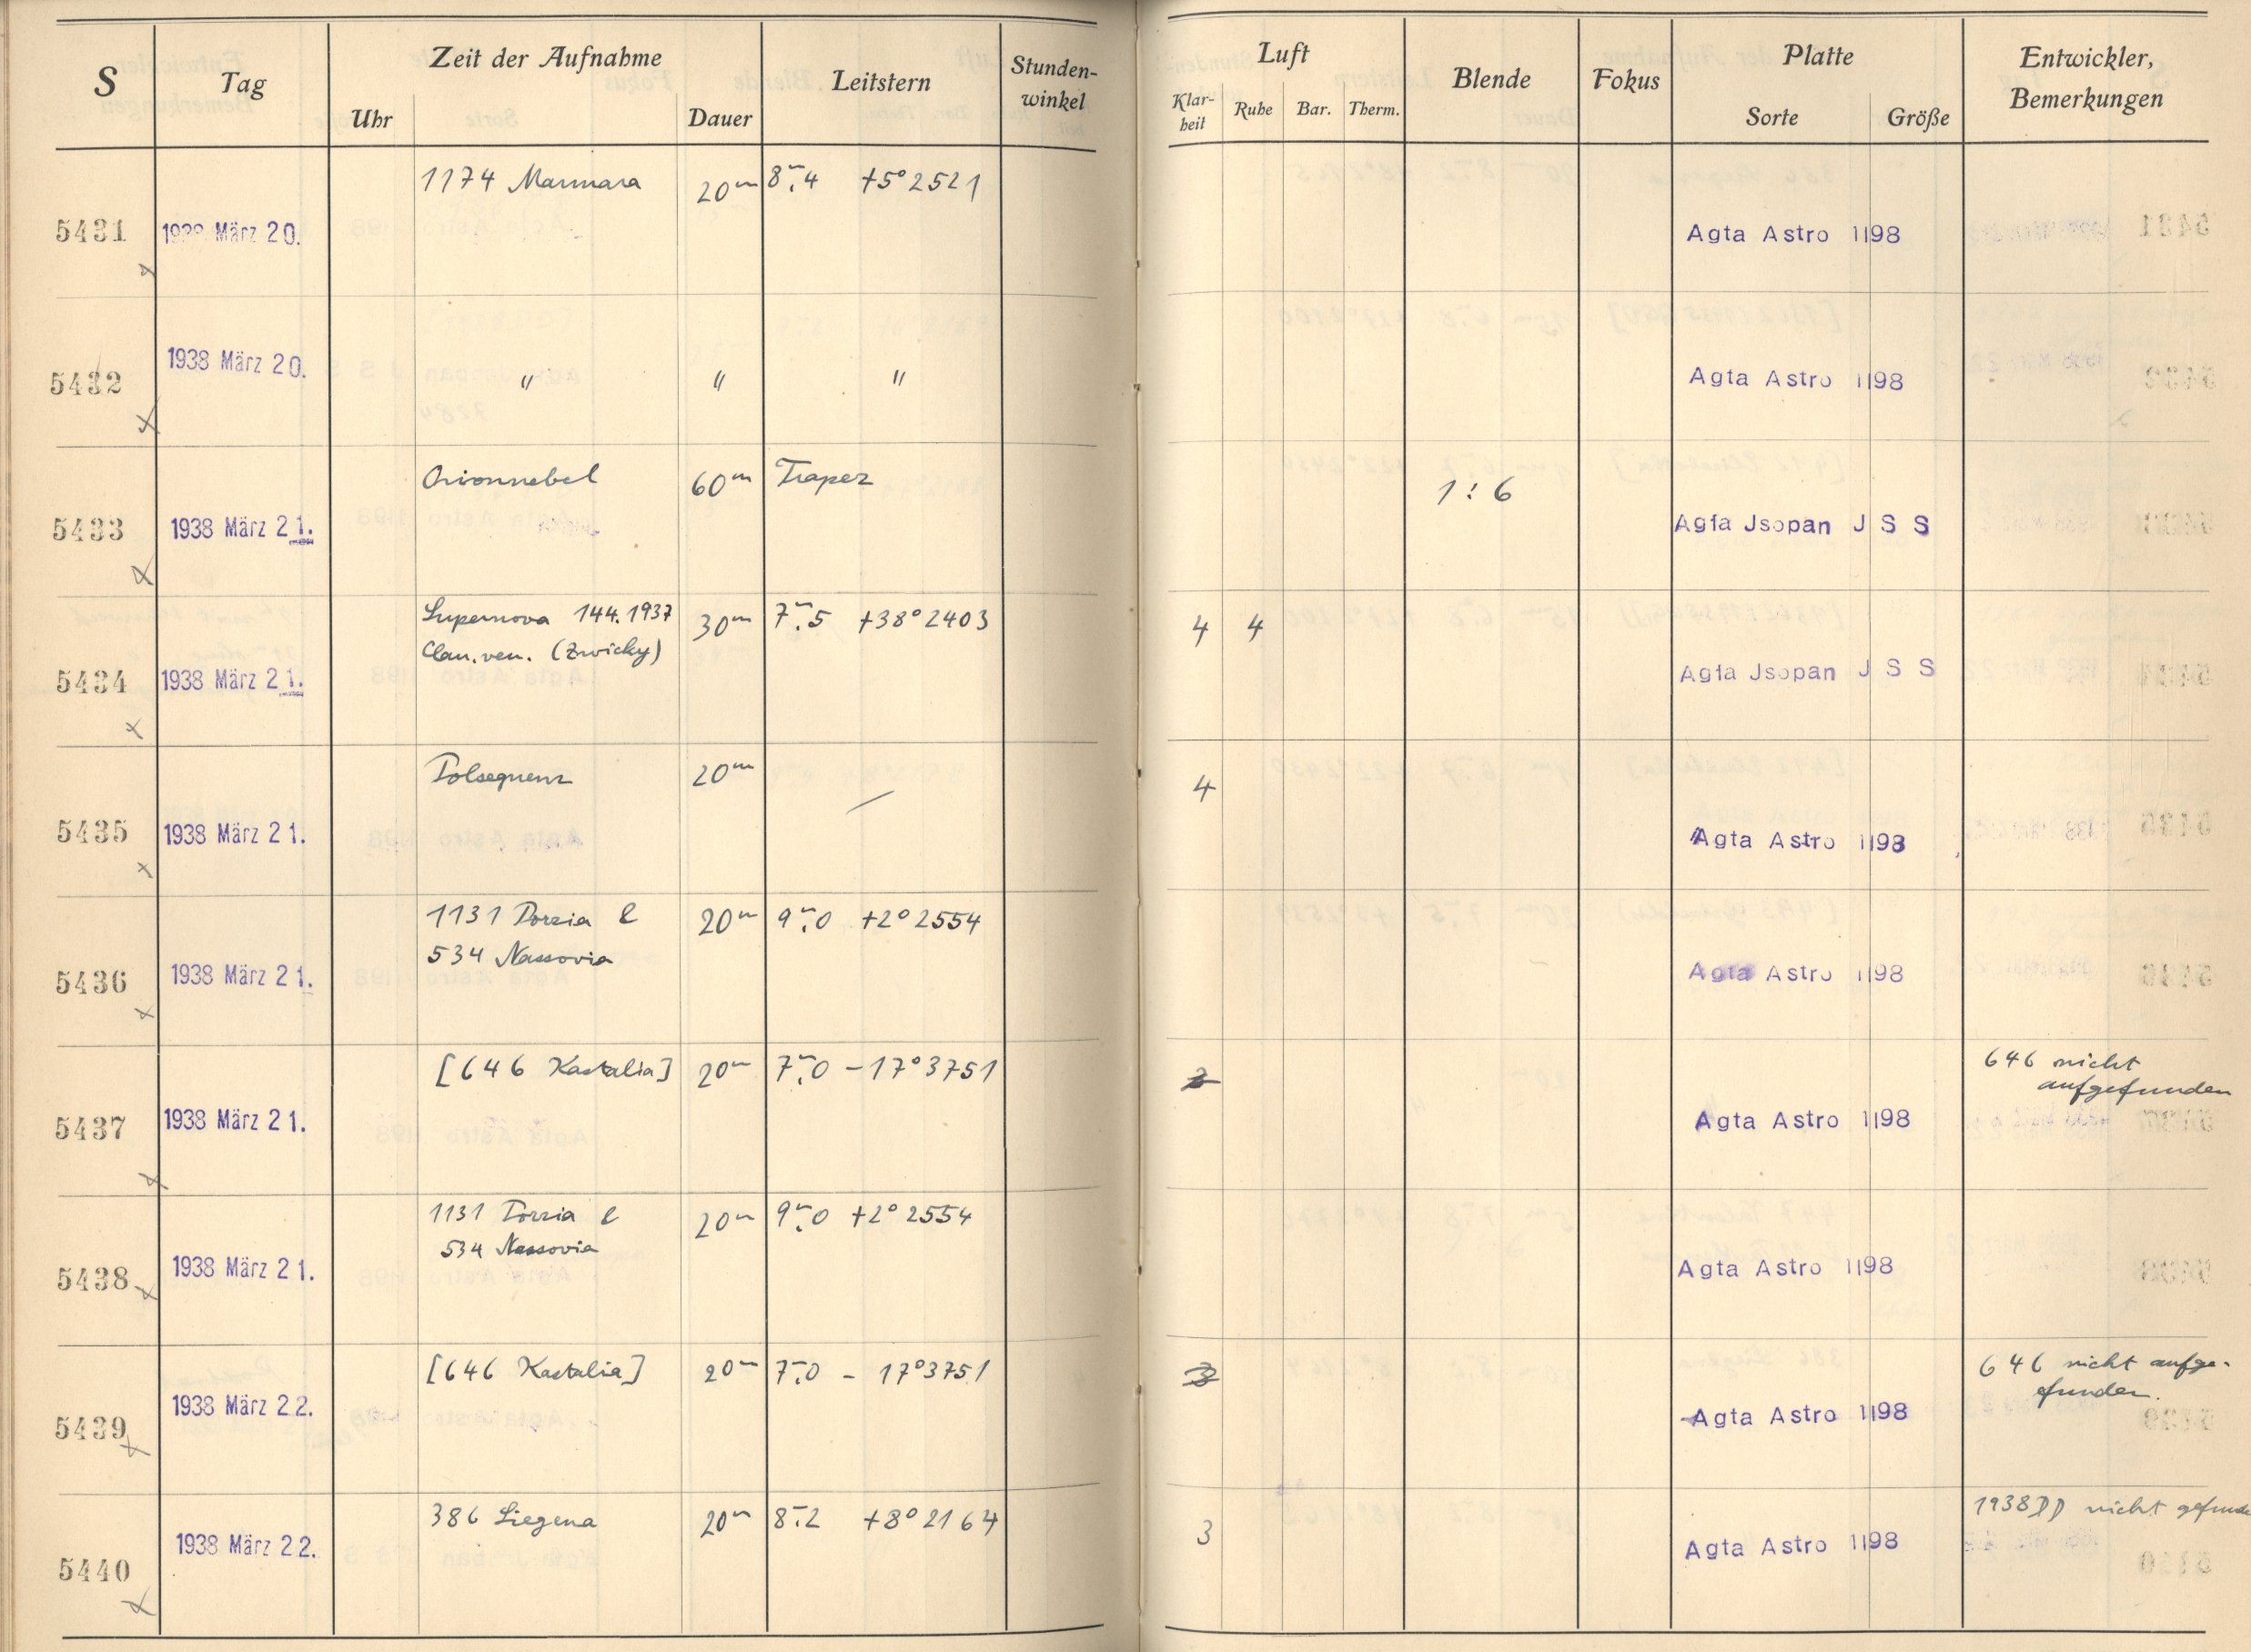 S Tag Zeit der Aufnahme Leitstern Stunden-
winkel Luft Blende Fokus Platte Entwickler,
Bemerkungen
Uhr Dauer Klar-
heit Ruhe Bar. Therm. Sorte Größe
1174 Marmara 20m 8m.4 +5° 2521
5431 1938 März 20. Agfa Astro 1198
5432 1938 März 20. " " " Agfa Astro 1198
Orionnebel 60m Trapez 1:6
5433 1938 März 21. Agfa Jsopan J S S
Supernova 144.1937 30m 7m.5 +38° 2403 4 4
Can. ven. (Zwicky)
5434 1938 März 21. Agfa Jsopan J S S
Polsequenz 20m — 4
5435 1938 März 21. Agfa Astro 1198
1131 Porzia & 20m 9m.0 +2° 2554
534 Nassovia
5436 1938 März 21. Agfa Astro 1198
[646 Kastalia] 20m 7m.0 -17° 3751 646 nicht
aufgefunden
5437 1938 März 21. Agfa Astro 1198
1131 Porzia & 20m 9m.0 +2° 2554
534 Nassovia
5438 1938 März 21. Agfa Astro 1198
[646 Kastalia] 20m 7m.0 - 17° 3751 3 646 nicht aufge-
funden.
5439 1938 März 22. Agfa Astro 1198
386 Siegena 20m 8m.2 +8° 2164 3 1938 DD nicht gefunde
5440 1938 März 22. Agfa Astro 1198